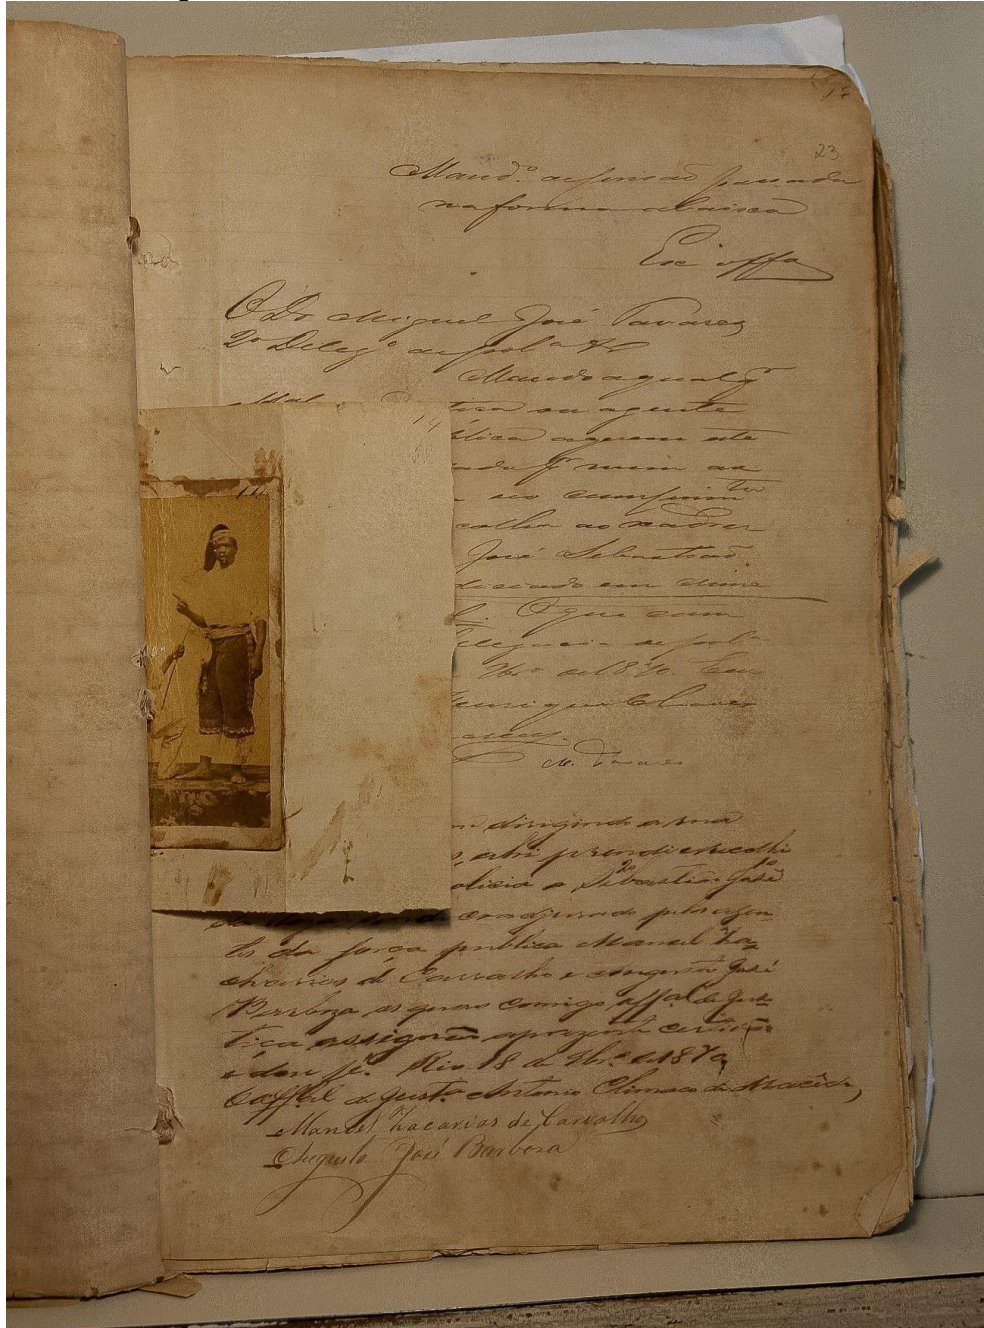 12
23
Mand.º de prisaõ passado
na forma abaixo
Esc offo
O Dr Miguel José Tavares
2º Deleg.º de pol.ª &
Mando a qualqr
ou agente
14
blica a quem este
for
no cumprim.to
colha ao xadrez
José Sebastiaõ
diciado em crime
O que cum
Delegacia de pol
9br.o de 1870. Eu
Henrique Chaves
M. Tavares
dirigindo a sua
ahi prendi e recolhi
olicia o Sebastião José
coadjuvado pelos agen
tes da força publica Manoel Za
charias de Carvalho e Augusto José
Barboza os quaes comigo offal de Jus
tiça assignaõ a prezente certidaõ
e dou fé. Rio 18 de 9br.o de 1870
O off.al de Just.a Antonio Climaco de Macêdo
Manoel Zacarias de Carvalho
Augusto José Barbosa